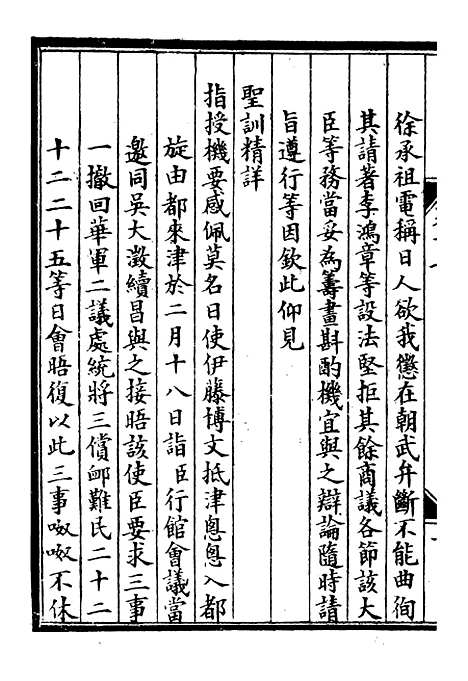 徐承祖電稱日人欲我懲在朝武弁斷不能曲徇
其請著李鴻章等設法堅拒其餘商議各節該大
臣等務當妥為籌畫斟酌機宜與之辯論隨時請
旨遵行等因欽此仰見
聖訓精詳
指授機要感佩莫名日使伊藤博文抵津悤悤入都
旋由都來津於二月十八日詣臣行館會議當
邀同吳大澂續昌與之接晤該使臣要求三事
一撤回華軍二議處統將三償卹難民二十二
十二二十五等日會晤復以此三事呶呶不休